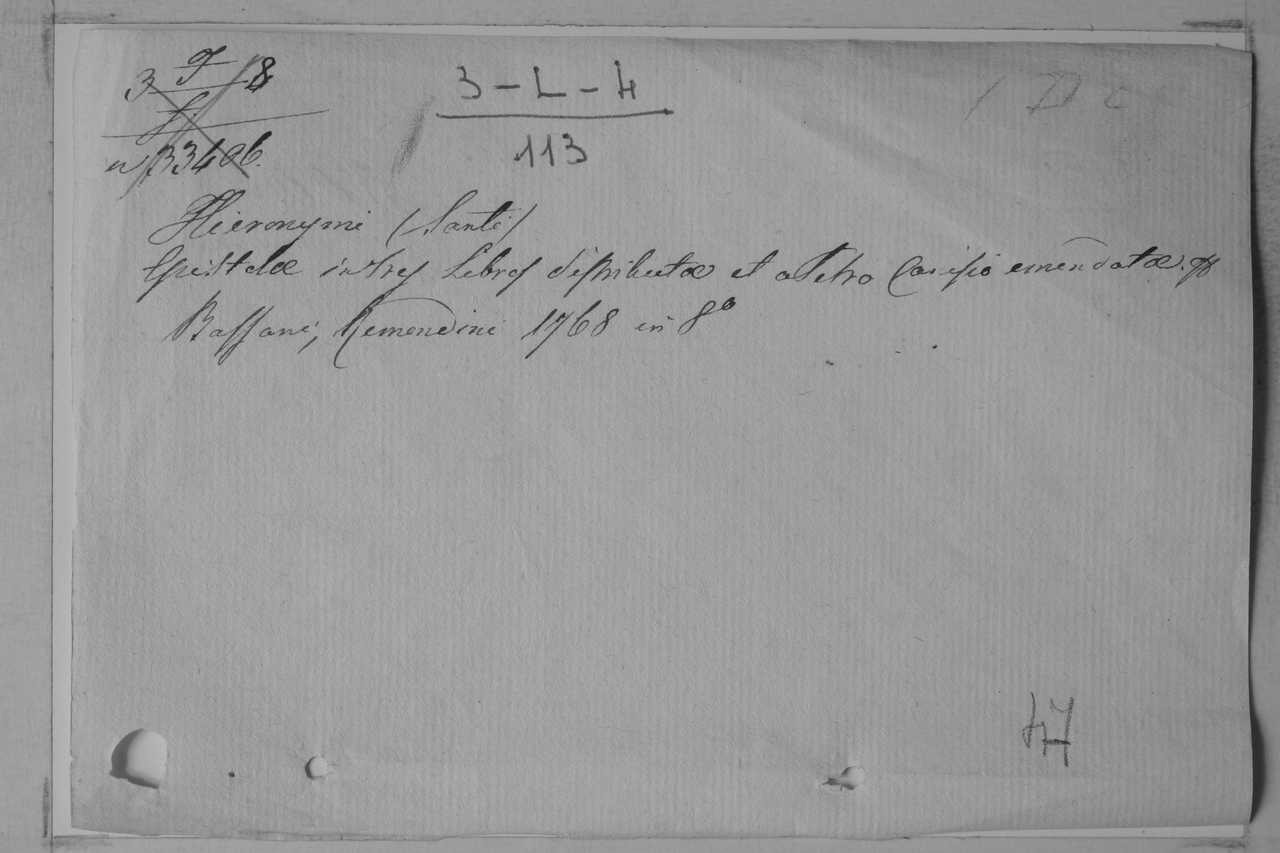 3 T 8
n 33406.
3-L-4
113
Hieronymi (Santi)
Epistolæ in tres Libros distributæ et a Petro Canisio emendatæ.
Bassani, Remondini 1768 in 8º
47